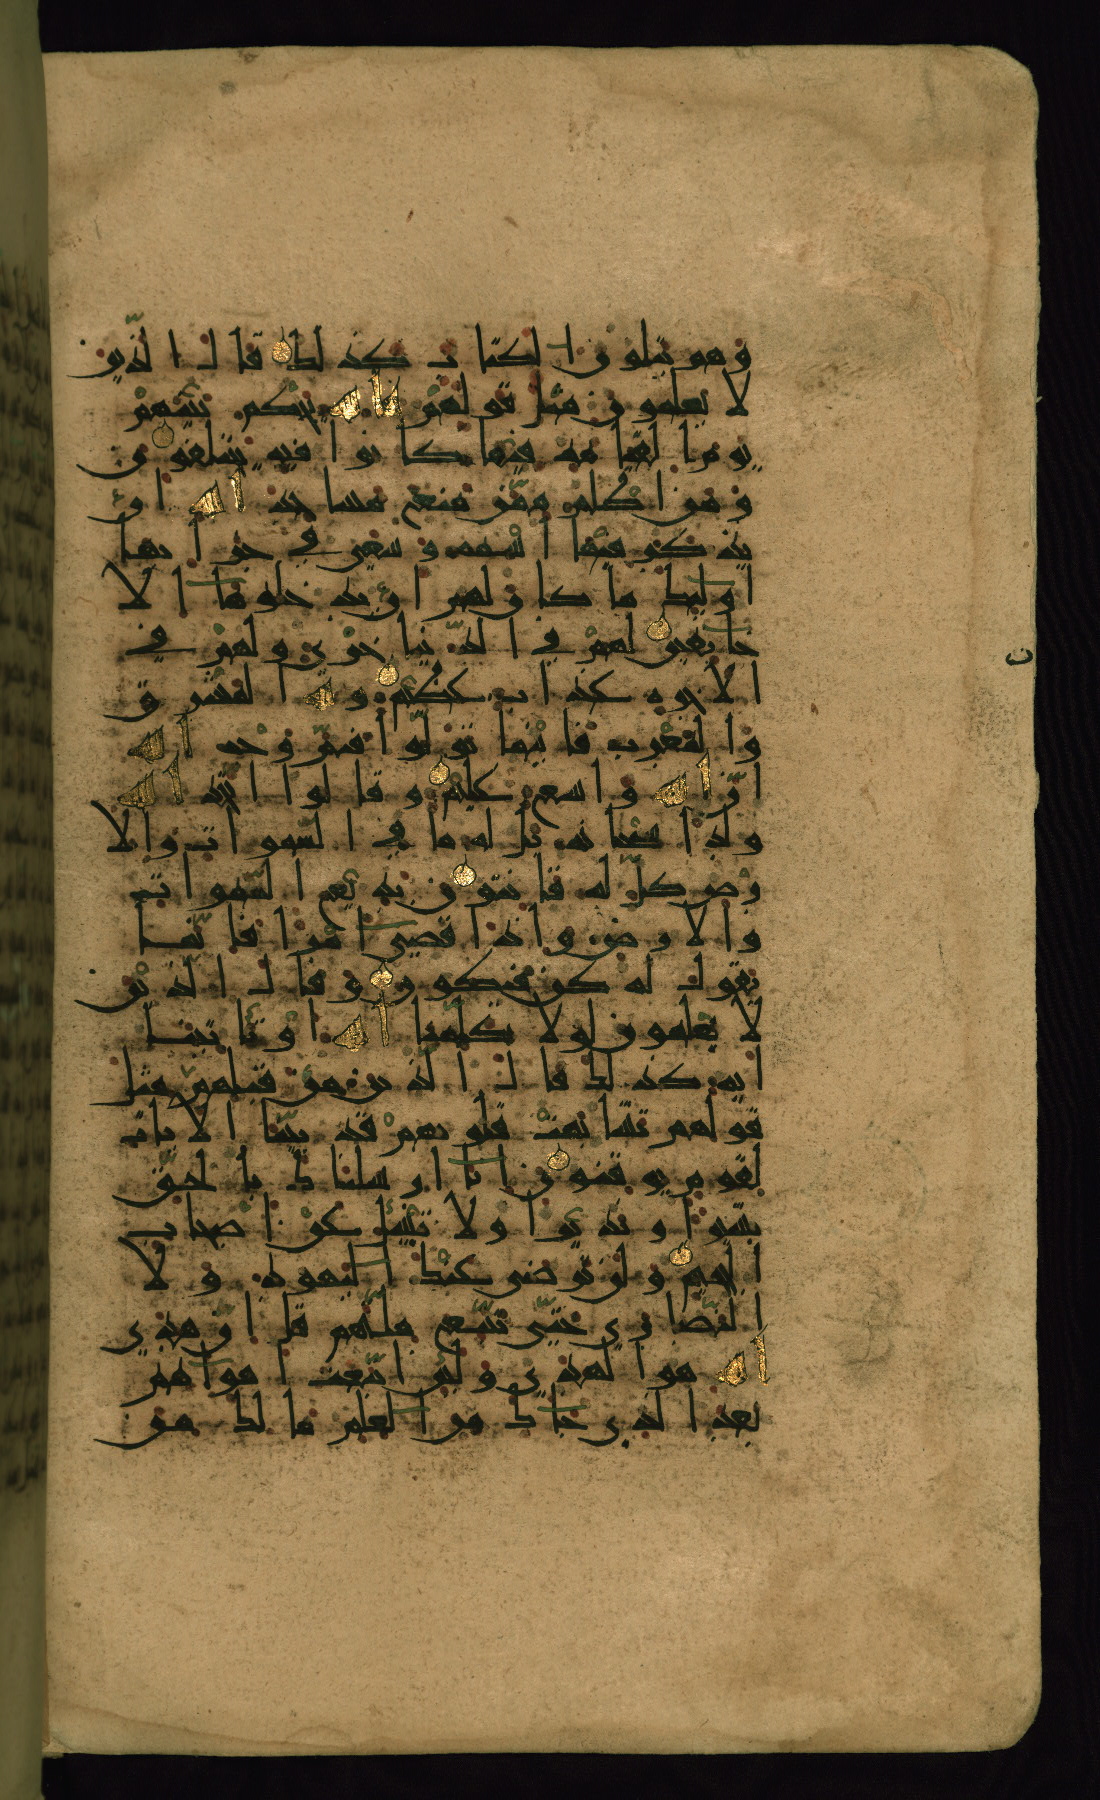 وهم يتلون الكتاب كذلك قال الذين
لا يعلمون مثل قولهم فالله يحكم بينهم
يوم القيامة فيما كانوا فيه يختلفون
ومن اظلم ممن منع مساجد الله ان
يذكر فيها اسمه وسعى في خرابها
اولئك ما كان لهم ان يدخلوها الا
خائفين لهم في الدنيا خزي ولهم في
الاخرة عذاب عظيم ولله المشرق
والمغرب فاينما تولوا فثم وجه الله
ان الله واسع عليم وقالوا اتخذ الله
ولدا سبحانه بل له ما في السموات والا
رض كل له قانتون بديع السموات
والارض واذا قضى امرا فانما
يقول له كن فيكون وقال الذين
لا يعلمون لولا يكلمنا الله او تاتينا
اية كذلك قال الذين من قبلهم مثل
قولهم تشابهت قلوبهم قد بينا الايات
لقوم يوقنون انا ارسلناك بالحق
بشيرا ونذيرا ولا تسئل عن اصحاب
الجحيم ولن ترضى عنك اليهود ولا
النصارى حتى تتبع ملتهم قل ان هدى
الله هو الهدى ولئن اتبعت اهواءهم
بعد الذي جاءك من العلم ما لك من